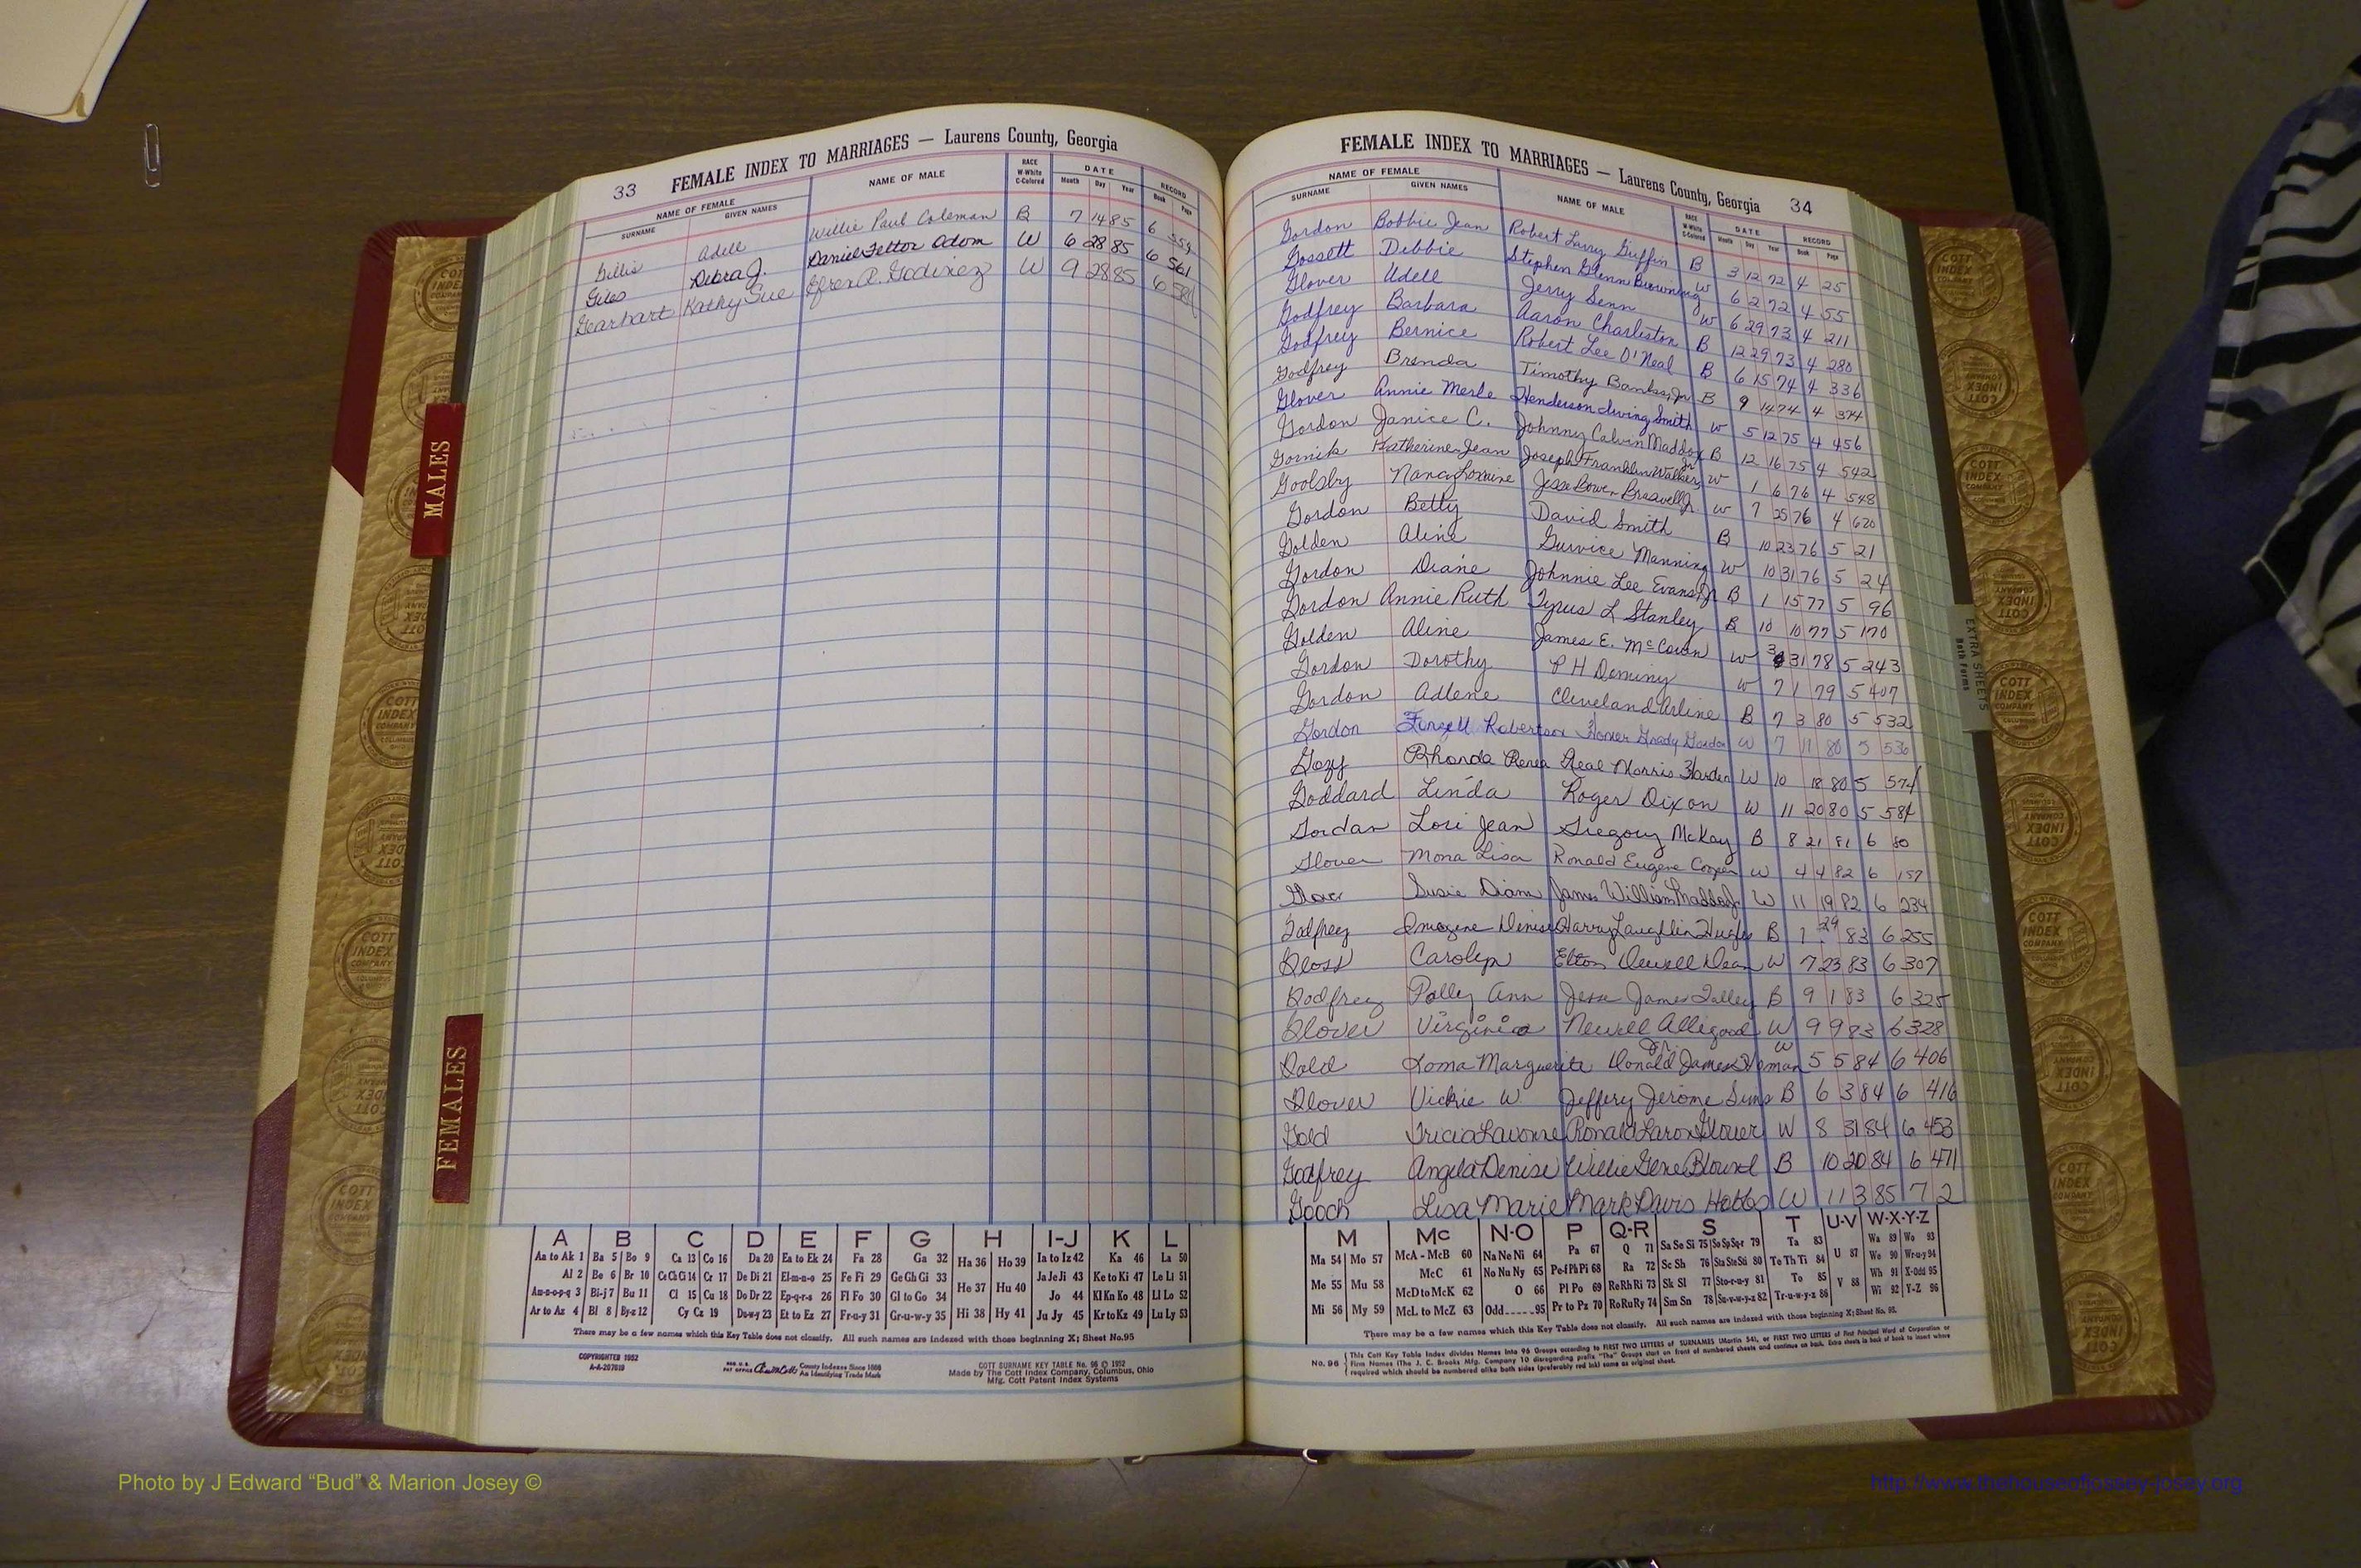 33 FEMALE INDEX TO MARRIAGES — Laurens County, Georgia
NAME OF FEMALE NAME OF MALE RACE W-White C-Colored DATE RECORD
SURNAME GIVEN NAMES Month Day Year Book Page
Gillis Adell Willie Paul Coleman B 7 14 85 6 559
Giles Debra J. Daniel Fettor Odom W 6 28 85 6 561
Gearhart Kathy Sue Efren R. Godinez W 9 28 85 6
MALES
FEMALES
A B C D E F G H I-J K L
Aa to Ak 1 Ba 5 Bo 9 Ca 13 Co 16 Da 20 Ea to Ek 24 Fa 28 Ga 32 Ha 36 Ho 39 Ia to Iz 42 Ka 46 La 50
Al 2 Be 6 Br 10 Ce Ch Ci 14 Cr 17 De Di 21 El-m-n-o 25 Fe Fi 29 Ge Gh Gi 33 He 37 Hu 40 Ja Je Ji 43 Ke to Ki 47 Le Li 51
Am-n-o-p-q 3 Bi-j 7 Bu 11 Cl 15 Cu 18 Do Dr 22 Ep-q-r-s 26 Fl Fo 30 Gl to Go 34 Jo 44 Kl Kn Ko 48 Ll Lo 52
Ar to Az 4 Bl 8 By-z 12 Cy Cz 19 Du-w-y 23 Et to Ez 27 Fr-u-y 31 Gr-u-w-y 35 Hi 38 Hy 41 Ju Jy 45 Kr to Kz 49 Lu Ly 53
There may be a few names which this Key Table does not classify. All such names are indexed with those beginning X; Sheet No. 95
COPYRIGHTED 1952
A-A-207010
REG. U.S. PAT OFFICE County Indexes Since 1888
An Identifying Trade Mark
COTT SURNAME KEY TABLE No. 96 © 1952
Made by The Cott Index Company, Columbus, Ohio
Mfg. Cott Patent Index Systems
FEMALE INDEX TO MARRIAGES — Laurens County, Georgia 34
NAME OF FEMALE NAME OF MALE RACE W-White C-Colored DATE RECORD
SURNAME GIVEN NAMES Month Day Year Book Page
Gordon Bobbie Jean Robert Larry Guffin B 3 12 72 4 25
Gossett Debbie Stephen Glenn Browning W 6 2 72 4 55
Glover Udell Jerry Senn W 6 29 73 4 211
Godfrey Barbara Aaron Charleston B 12 29 73 4 280
Godfrey Bernice Robert Lee O'Neal B 6 15 74 4 336
Godfrey Brenda Timothy Banks, Jr B 9 14 74 4 374
Glover Annie Merle Henderson Irving Smith W 5 12 75 4 456
Gordon Janice C. Johnny Calvin Maddox Jr B 12 16 75 4 542
Gornik Katherine Jean Joseph Franklin Walker W 1 6 76 4 548
Goolsby Nancy Loraine Jesse Bower Braswell Jr. W 7 25 76 4 620
Gordon Betty David Smith B 10 23 76 5 21
Golden Aline Gurvice Manning W 10 31 76 5 24
Gordon Diane Johnnie Lee Evans Jr B 1 15 77 5 96
Gordon Annie Ruth Tyrus L Stanley B 10 10 77 5 170
Golden Aline James E. McCowan W 3 31 78 5 243
Gordon Dorothy P H Deming W 7 1 79 5 407
Gordon Adlene Cleveland Arline B 7 3 80 5 532
Gordon Robertson Homer Grady Gordon W 7 11 80 5 536
Gozy Rhonda Renea Neal Morris Harden W 10 18 80 5 574
Goddard Linda Roger Dixon W 11 20 80 5 584
Gordan Lori Jean Gregory McKay B 8 21 81 6 80
Glover Mona Lisa Ronald Eugene Cooper W 4 4 82 6 157
Glover Susie Diann James William Maddox Jr W 11 19 82 6 234
Godfrey Imogene Denise Harry Laughlin Hughes B 1 29 83 6 255
Gloss Carolyn Elton Dewell Dean W 7 23 83 6 307
Godfrey Polly Ann Jesse James Talley B 9 1 83 6 325
Glover Virginia Newell Alligood W 9 9 83 6 328
Gold Loma Marguerite Donald James Homan Jr. W 5 5 84 6 406
Glover Vickie W Jeffery Jerome Sims B 6 3 84 6 416
Gold Tricia Lavonne Ronald Laron Glover W 8 31 84 6 453
Godfrey Angela Denise Willie Gene Blount B 10 20 84 6 471
Gooch Lisa Marie Mark Davis Hobbs W 11 3 85 7 2
EXTRA SHEETS
Both Forms
M Mc N-O P Q-R S T U-V W-X-Y-Z
Ma 54 Mo 57 McA - McB 60 Na Ne Ni 64 Pa 67 Q 71 Sa Se Si 75 So Sp Sq-r 79 Ta 83 U 87 Wa 89 Wo 93
Me 55 Mu 58 McC 61 No Nu Ny 65 Pe-f Ph Pi 68 Ra 72 Sc Sh 76 Sta Ste Sti 80 Te Th Ti 84 We 90 Wr-u-y 94
McD to McK 62 O 66 Pl Po 69 Re Rh Ri 73 Sk Sl 77 Sto-r-u-y 81 To 85 V 88 Wh 91 X-Odd 95
Mi 56 My 59 McL to McZ 63 Odd-----95 Pr to Pz 70 Ro Ru Ry 74 Sm Sn 78 Su-v-w-y-z 82 Tr-u-w-y-z 86 Wi 92 Y-Z 96
There may be a few names which this Key Table does not classify. All such names are indexed with those beginning X; Sheet No. 95.
No. 96 This Cott Key Table Index divides Names into 96 Groups according to FIRST TWO LETTERS of SURNAMES (Martin 54), or FIRST TWO LETTERS of First Principal Word of Corporation or
Firm Names (The J. C. Brooks Mfg. Company 10 disregarding prefix "The" Groups start on front of numbered sheets and continue on back. Extra sheets in back of book to insert where
required which should be numbered alike both sides (preferably red ink) same as original sheet.
Photo by J Edward “Bud” & Marion Josey ©
http://www.thehouseofjossey-josey.org